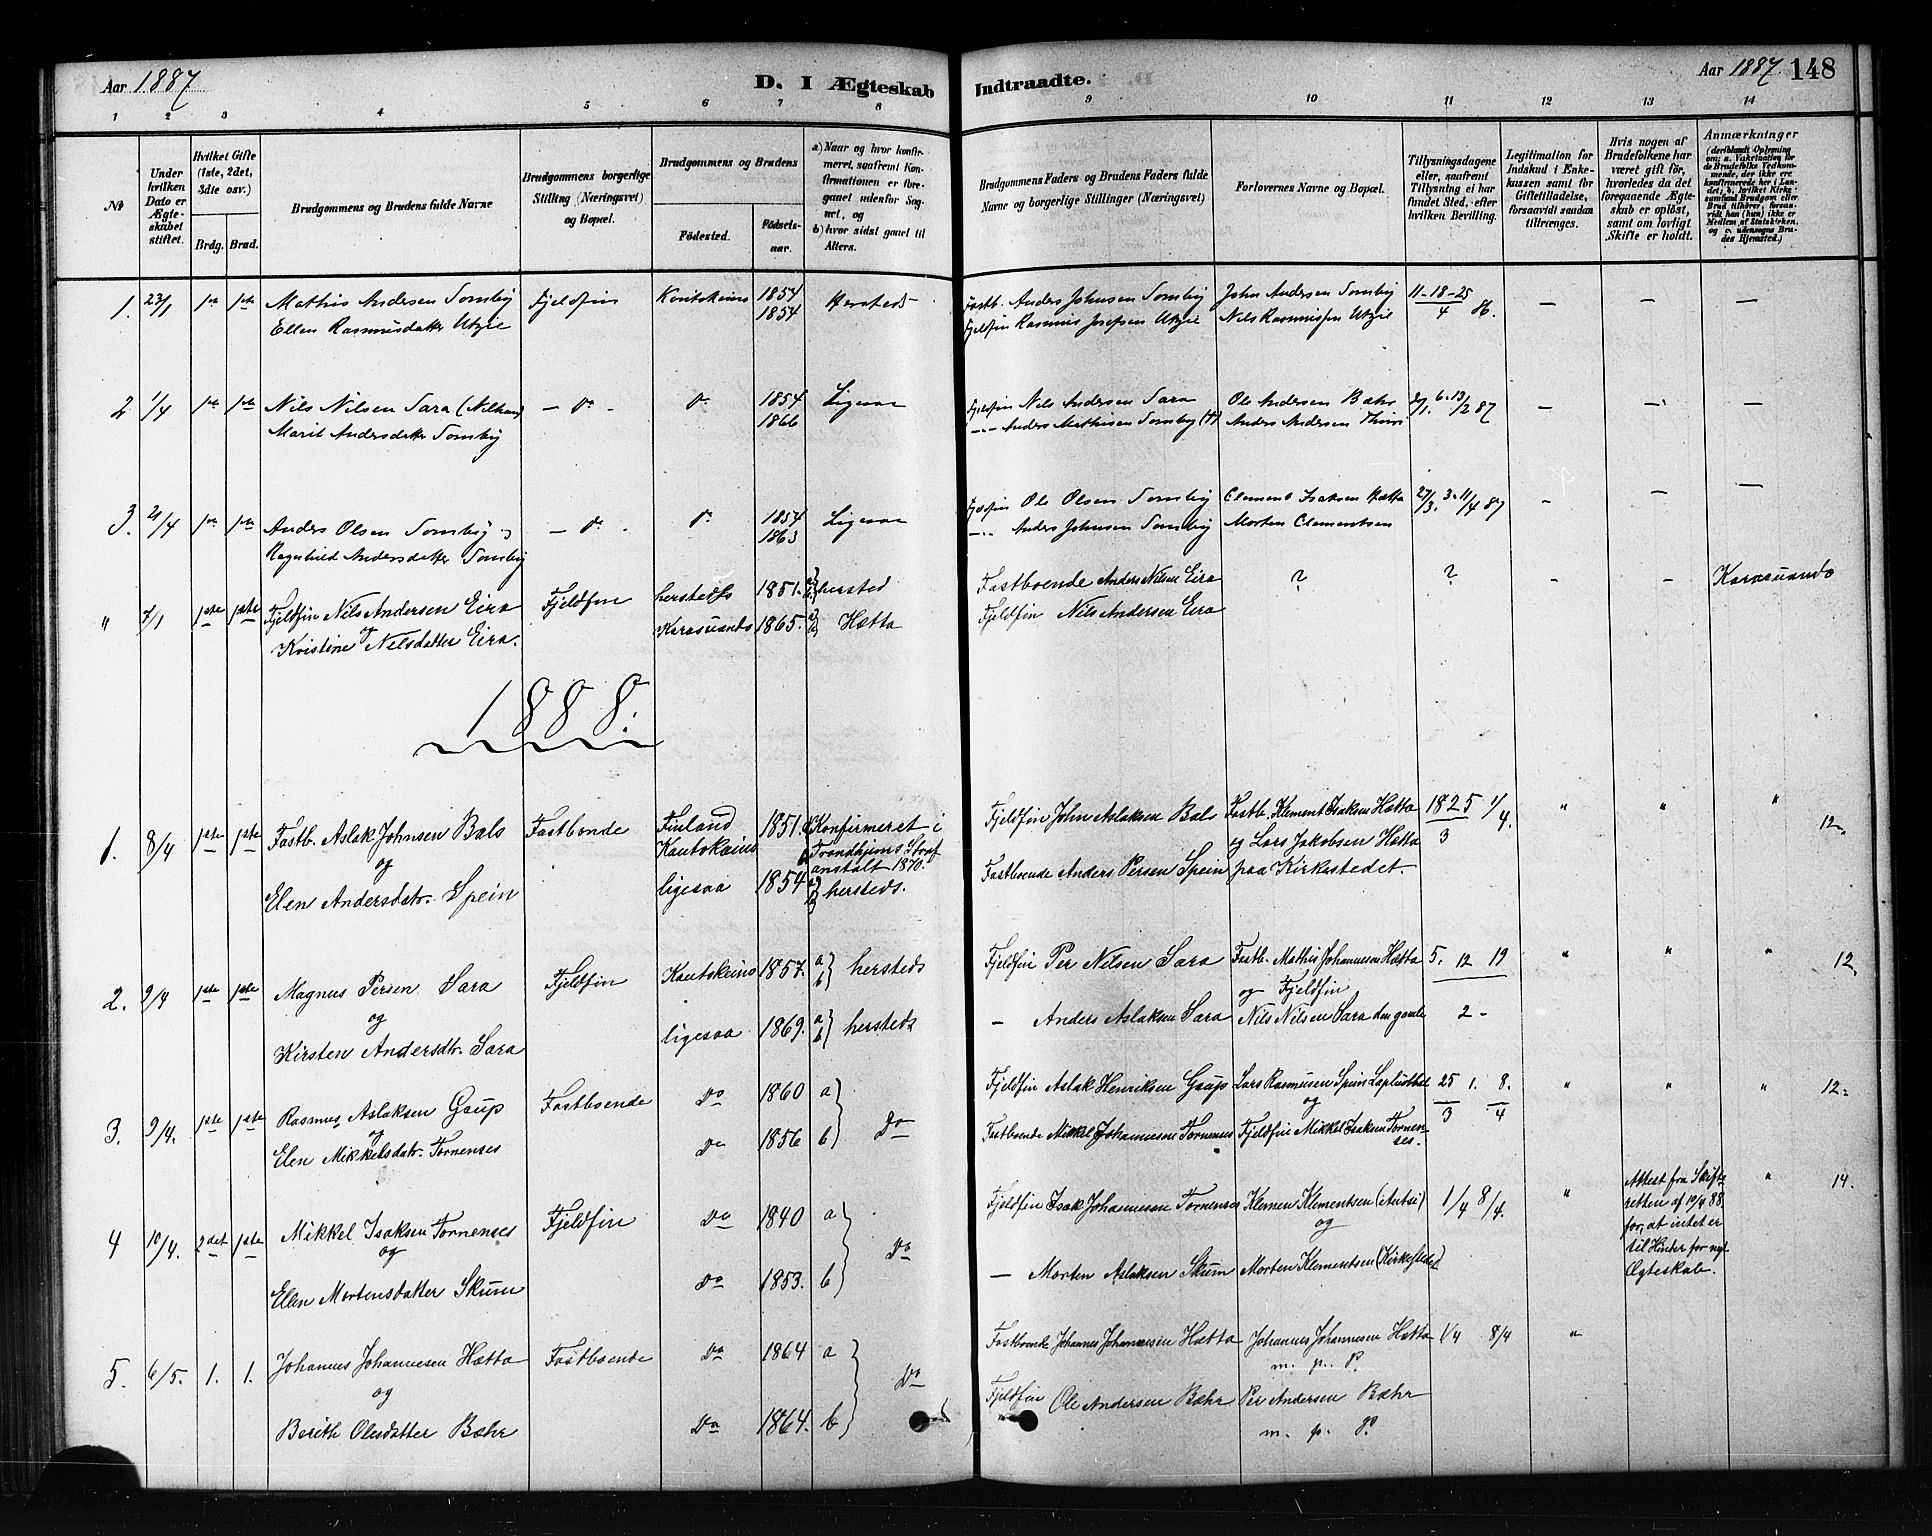 Aar 1887
D. I Ægteskab Indtraadte.
Aar 1887. 148
1 2 3 4 5 6 7 8 9 10 11 12 13 14
No
Under hvilken Dato er Ægteskabet stiftet.
Hvilket Gifte (1ste, 2det, 3die osv.)
Brdg. Brud.
Brudgommens og Brudens fulde Navne
Brudgommens borgerlige Stilling (Næringsvei) og Bopæl.
Brudgommens og Brudens
Fødested.
Fødsels-aar.
a) Naar og hvor konfirmeret, saafremt Konfirmationen er foregaaet udenfor Sognet, og
b) hvor sidst gaaet til Alters.
Brudgommens Faders og Brudens Faders fulde Navne og borgerlige Stillinger (Næringsvei)
Forlovernes Navne og Bopæl.
Tillysningsdagene eller, saafremt Tillysning ei har fundet Sted, efter hvilken Bevilling.
Legitimation for Indskud i Enkekassen samt for Giftetilladelse, forsaavidt saadan tiltrænges.
Hvis nogen af Brudefolkene har været gift før, hvorledes da det foregaaende Ægteskab er opløst, samt om lovligt Skifte er holdt.
Anmærkninger
(deriblandt Oplysning om: a. Vakcination for de Brudefolks Vedkommende, der ikke ere konfirmerede her i Landet; b. hvilket Kirkesamfund Brudgom eller Brud tilhører, forsaavidt han (hun) ikke er Medlem af Statskirken, og c. udensogns Brudes Hjemsted.)
1. 23/1 1ste 1ste Mathis Andersen Somby Fjeldfin Koutokeino 1854 Hersteds Fastb. Anders Johnsen Somby John Andersen Somby 11-18-25 — — —
Ellen Rasmusdatter Utzie 1854 Fjeldfin Rasmus Josefsen Utzie Nils Rasmussen Utzie 4 86.
2 1/4 1ste 1ste Nils Nilsen Sara — Do - Do 1854 Ligesaa Fjeldfin Nils Andersen Sara Ole Andersen Bæhr 6. 13/2 87 — — —
Marit Andersdatter Somby 1866 —"— Anders Mathisen Somby (†) Anders Andersen
3. 21/4 1ste 1ste Anders Olsen Somby og — Do - Do 1854 Ligesaa Fjeldfin Ole Olsen Somby Clement Isaksen Hætta 27/3. 3. 11/4 87 — — —
Ragnhild Andersdatter Somby 1863 —"— Anders Johnsen Somby Morten Clementsen
" 7/1 1ste 1ste Fjeldfin Nils Andersen Eira Fjeldfin hersteds 1851. a b } hersted Fastboende Anders Nilsen Eira ? ? - - Karesuando
og
Kristine Nilsdatter Eira. Karesuando 1865. a b } Hætta Fjeldfin Nils Andersen Eira
1888.
1. 8/4 1ste 1ste Fastb. Aslak Johnsen Bals Fastboende Finland 1851. a Konfirmeret i Fjeldfin John Aslaksen Bals Fastb. Klement Isaksen Hætta 18 25 1/4. " " " 12.
og Kautokeino b Trondhjems Straf og Lars Jakobsen Hætta 3
anstalt 1870.
Elen Andersdatr. Spein ligesaa 1854 a b } hersteds. Fastboende Anders Persen Spein paa Kirkestedet.
2. 9/4 1ste 1ste Magnus Persen Sara Fjeldfin Kautokeino 1857. a b } hersteds Fjeldfin Per Nilsen Sara Fastb. Mathis Johannesen Hætta 5. 12 19 " " " 12.
og og Fjeldfin
Kirsten Andersdtr. Sara ligesaa 1869. a b } hersteds — Anders Aslaksen Sara Nils Nilsen Sara den gamle 2 -
3. 9/4. 1ste 1ste Rasmus Aslaksen Gaup Fastboende Do 1860 a Fjeldfin Aslak Henriksen Gaup Lars Rasmusen Spein 25 1. 8. " " " 12.
og og 3 4
Elen Mikkelsdatr. Tornenses Do 1856 b } Do Fastboende Mikkel Johannesen Tornenses Fjeldfin Mikkel Isaksen Tornenses.
4 10/4. 2det 1ste Mikkel Isaksen Tornenses Fjeldfin Do 1840 a Fjeldfin Isak Johannesen Tornenses Klemen Klementsen (Autsi) 1/4 8/4. " Attest fra Skifteretten af 10/4 88 for, at intet er til Hinder for nyt Ægteskab. " 14.
og og
Elen Mortensdatter Skum Do 1853. b } Do — Morten Aslaksen Skum Morten Klementsen (Kirkestedet)
5. 6/5. 1. 1. Johannes Johannesen Hætta Fastboende Do 1864 a Fastboende Johannes Johannesen Hætta Johannes Johannesen Hætta 1/4 8/4 "
og m. p. P.
Berith Olesdatter Bæhr Do 1864. b } Do Fjeldfin Ole Andersen Bæhr Per Andersen Bæhr
m. p. P.